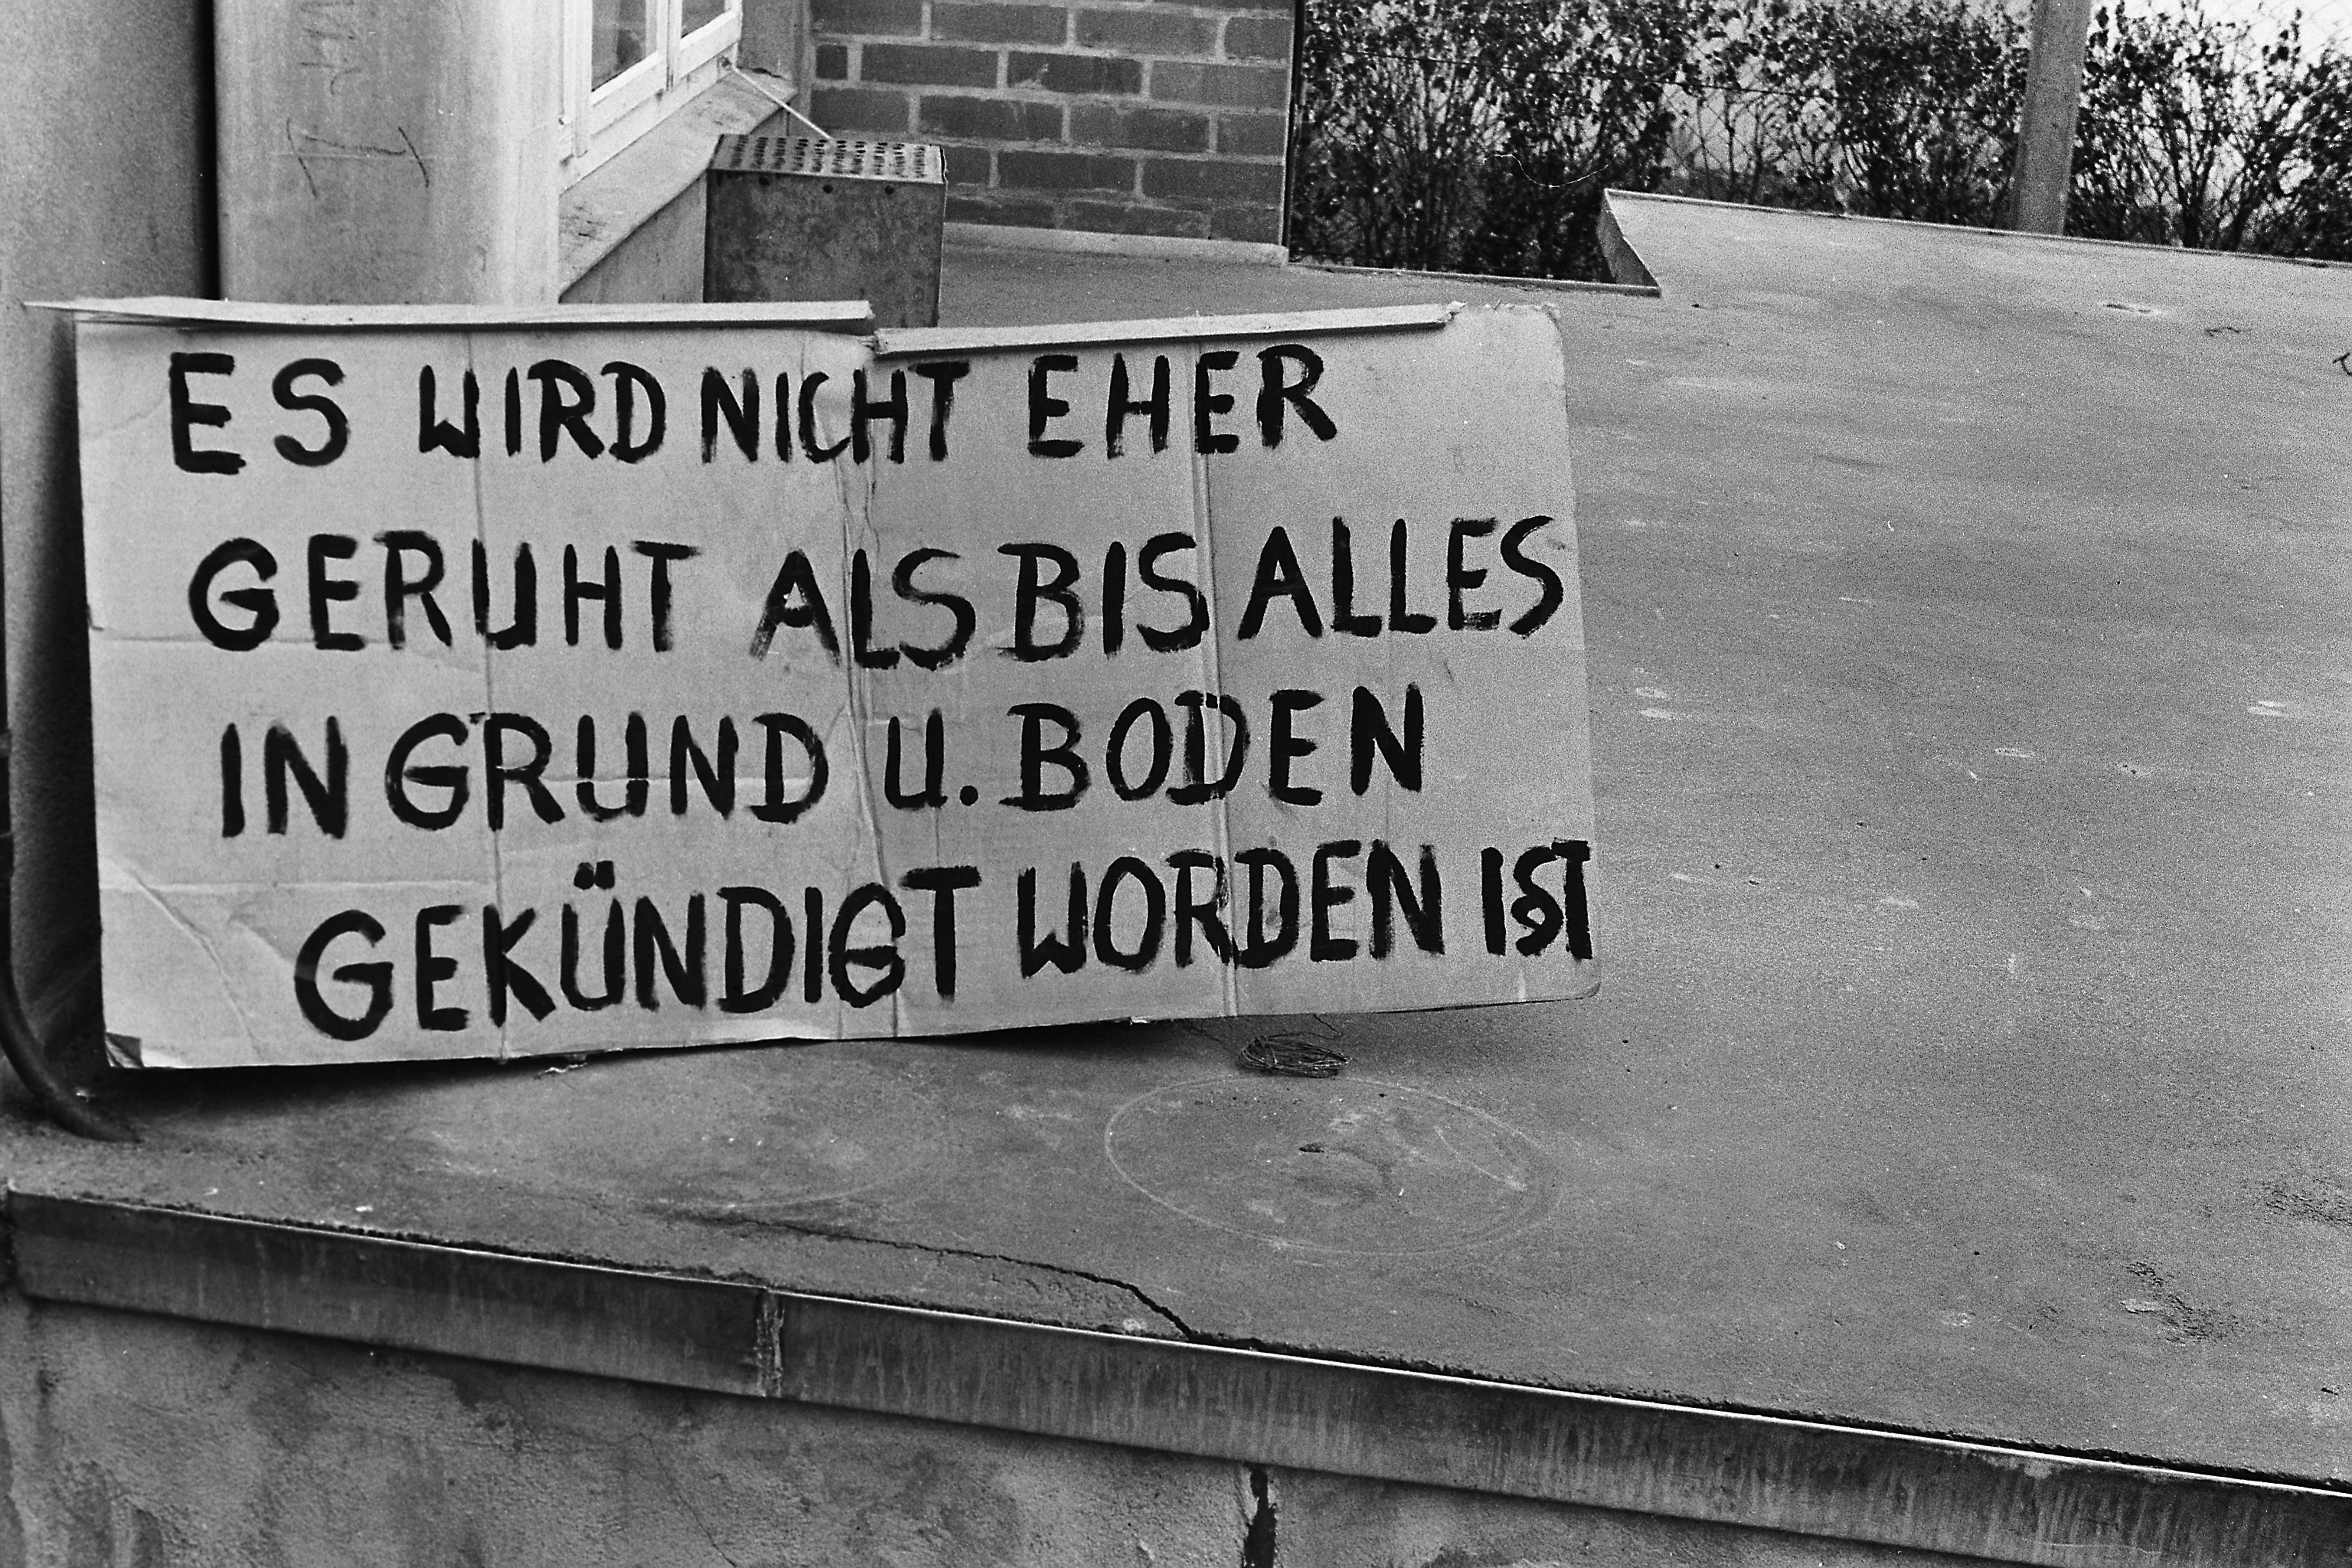 ES WIRD NICHT EHER
GERUHT ALS BIS ALLES
IN GRUND U. BODEN
GEKÜNDIGT WORDEN IST